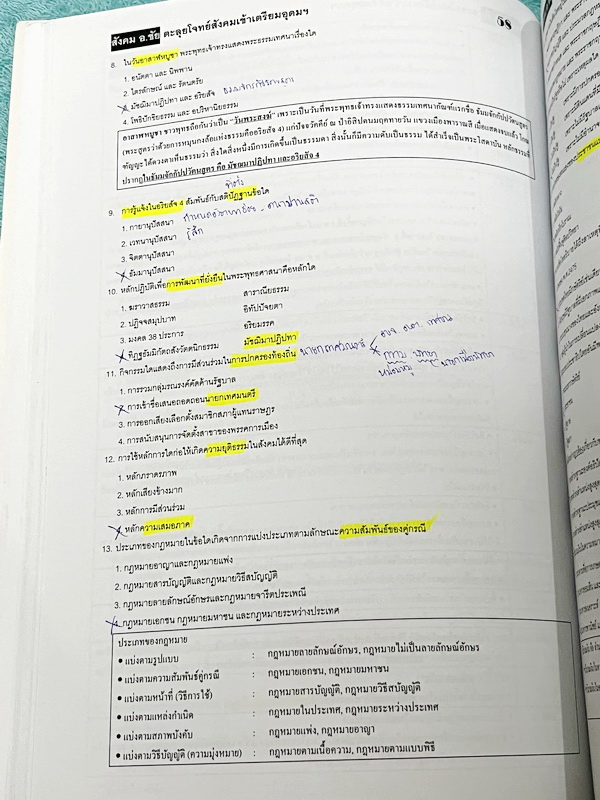 สังคม อ.ชัย ตะลุยโจทย์สังคมเข้าเตรียมอุดมฯ
58
8. ในวันอาสาฬหบูชา พระพุทธเจ้าทรงแสดงพระธรรมเทศนาเรื่องใด
1. อนัตตา และ นิพพาน
2. ไตรลักษณ์ และ รัตนตรัย
3. มัชฌิมาปฏิปทา และ อริยสัจ
4. โพธิปักขิยธรรม และ อปริหานิยธรรม
อาสาฬหบูชา ชาวพุทธถือกันว่าเป็น "วันพระสงฆ์" เพราะเป็นวันที่พระพุทธเจ้าทรงแสดงธรรมเทศนากัณฑ์แรกชื่อ ธัมมจักกัปปวัตนสูตร
(พระสูตรว่าด้วยการหมุนกงล้อแห่งธรรมคืออริยสัจ 4) แก่ปัจจวัคคีย์ ณ ป่าอิสิปตนมฤคทายวัน แขวงเมืองพาราณสี เมื่อแสดงจบแล้ว โกณฑั
ญญะได้ดวงตาเห็นธรรมว่า สิ่งใดสิ่งหนึ่งมีการเกิดขึ้นเป็นธรรมดา สิ่งนั้นก็มีความดับเป็นธรรม ได้สำเร็จเป็นพระโสดาบัน หลักธรรมที่
ปรากฏในธัมมจักกัปปวัตนสูตร คือ มัชฌิมาปฏิปทา และอริยสัจ 4
9. การรู้แจ้งในอริยสัจ 4 สัมพันธ์กับสติปัฏฐานข้อใด
1. กายานุปัสสนา
2. เวทนานุปัสสนา รู้สึก
3. จิตตานุปัสสนา
4. ธัมมานุปัสสนา
10. หลักปฏิบัติเพื่อการพัฒนาที่ยั่งยืนในพระพุทธศาสนาคือหลักใด
1. ฆราวาสธรรม สาราณียธรรม
2. ปฏิจจสมุปบาท อิทัปปัจยตา
3. มงคล 38 ประการ อริยมรรค
4. ทิฏฐธัมมิกัตถสังวัตตนิกธรรม มัชฌิมาปฏิปทา
11. กิจกรรมใดแสดงถึงการมีส่วนร่วมในการปกครองท้องถิ่น
1. การรวมกลุ่มรณรงค์คัดค้านรัฐบาล
2. การเข้าชื่อเสนอถอดถอนนายกเทศมนตรี
3. การออกเสียงเลือกตั้งสมาชิกสภาผู้แทนราษฎร
4. การสนับสนุนการจัดตั้งสาขาของพรรคการเมือง
12. การใช้หลักการใดก่อให้เกิดความยุติธรรมในสังคมได้ดีที่สุด
1. หลักภราดรภาพ
2. หลักเสียงข้างมาก
3. หลักการมีส่วนร่วม
4. หลักความเสมอภาค
13. ประเภทของกฎหมายในข้อใดเกิดจากการแบ่งประเภทตามลักษณะความสัมพันธ์ของคู่กรณี
1. กฎหมายอาญาและกฎหมายแพ่ง
2. กฎหมายสารบัญญัติและกฎหมายวิธีสบัญญัติ
3. กฎหมายลายลักษณ์อักษรและกฎหมายจารีตประเพณี
4. กฎหมายเอกชน กฎหมายมหาชน และกฎหมายระหว่างประเทศ
ประเภทของกฎหมาย
• แบ่งตามรูปแบบ : กฎหมายลายลักษณ์อักษร, กฎหมายไม่เป็นลายลักษณ์อักษร
• แบ่งตามความสัมพันธ์คู่กรณี : กฎหมายเอกชน, กฎหมายมหาชน
• แบ่งตามหน้าที่ (วิธีการใช้) : กฎหมายสารบัญญัติ, กฎหมายวิธีสบัญญัติ
• แบ่งตามแหล่งกำเนิด : กฎหมายในประเทศ, กฎหมายระหว่างประเทศ
• แบ่งตามสภาพบังคับ : กฎหมายแพ่ง, กฎหมายอาญา
• แบ่งตามวิธีบัญญัติ (ความมุ่งหมาย) : กฎหมายตามเนื้อความ, กฎหมายตามแบบพิธี